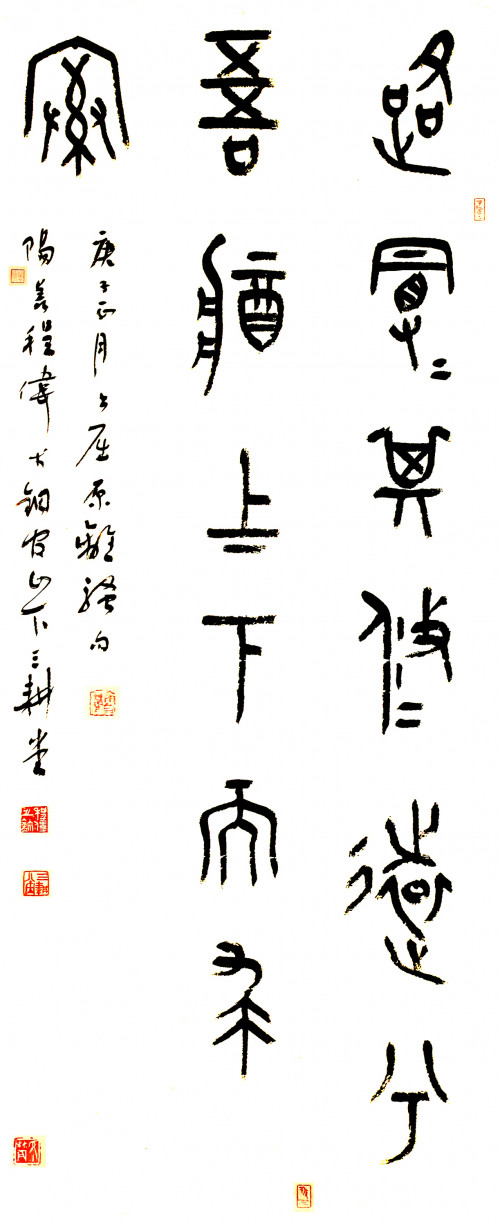 路曼〻其修遠兮
吾將上下而求
索
庚子正月書屈原離騷句
陽羨程偉於銅官山下三耕堂